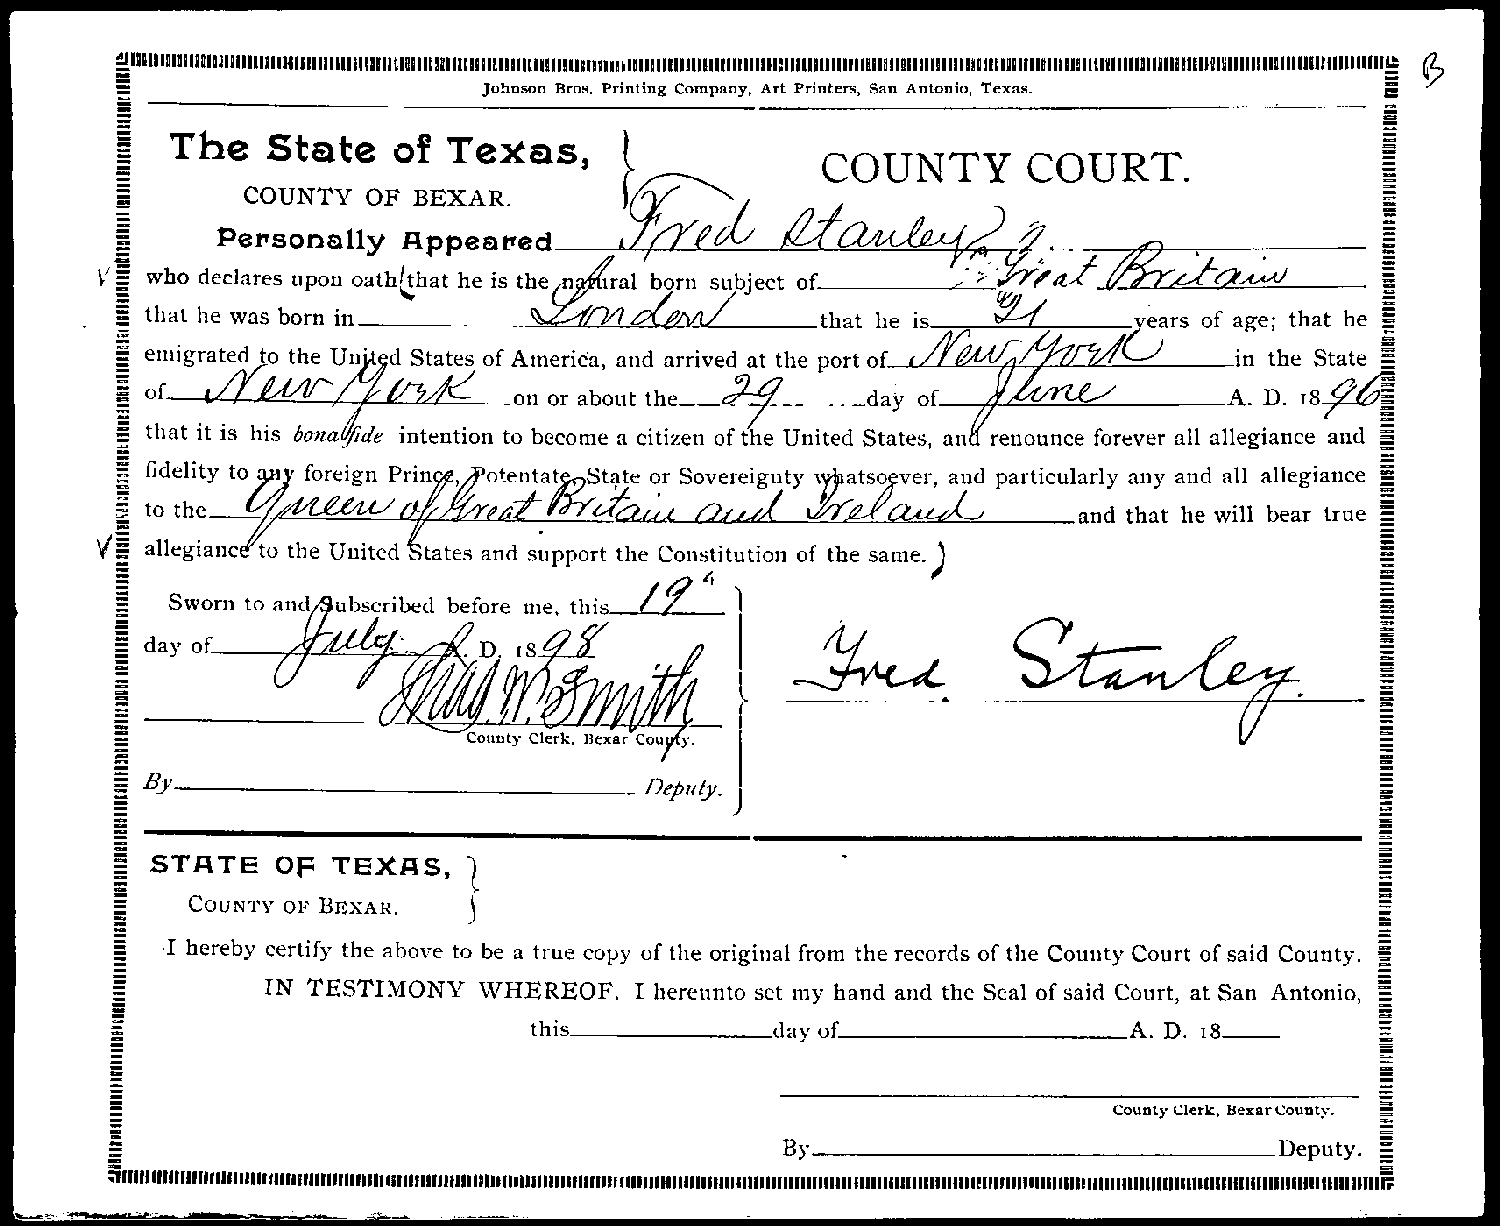 B
Johnson Bros. Printing Company, Art Printers, San Antonio, Texas.
The State of Texas,
COUNTY OF BEXAR.
COUNTY COURT.
Personally Appeared Fred Stanley
who declares upon oath that he is the natural born subject of Great Britain
that he was born in London that he is 21 years of age; that he
emigrated to the United States of America, and arrived at the port of New York in the State
of New York on or about the 29 day of June A. D. 1896
that it is his bona fide intention to become a citizen of the United States, and renounce forever all allegiance and
fidelity to any foreign Prince, Potentate, State or Sovereignty whatsoever, and particularly any and all allegiance
to the Queen of Great Britain and Ireland and that he will bear true
allegiance to the United States and support the Constitution of the same.
Sworn to and Subscribed before me, this 19"
day of July A. D. 1898
Thad W. Smith
County Clerk, Bexar County.
By Deputy.
Fred. Stanley.
STATE OF TEXAS,
COUNTY OF BEXAR.
I hereby certify the above to be a true copy of the original from the records of the County Court of said County.
IN TESTIMONY WHEREOF, I hereunto set my hand and the Seal of said Court, at San Antonio,
this day of A. D. 18
County Clerk, Bexar County.
By Deputy.